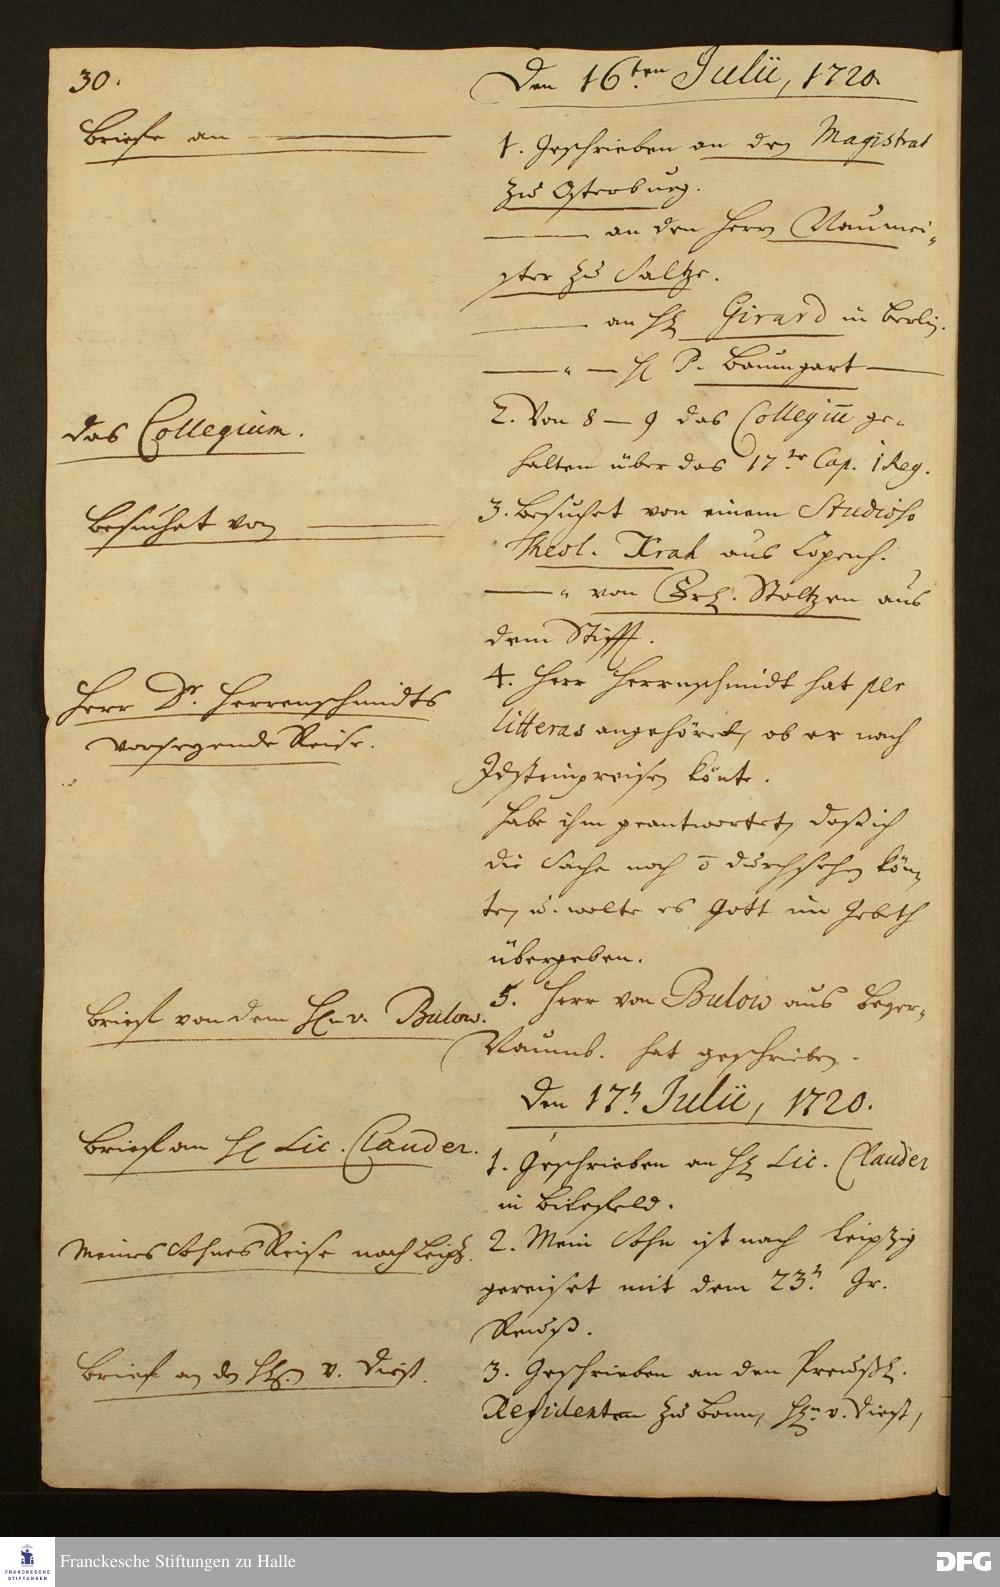 30.
Den 16.ten Julii, 1720.
Briefe an
1. Geschrieben an den Magistrat
zu Osterburg.
an den Herrn Naumei-
ster zu Saltze.
an H. Girard in Berlin.
" — H. P. Baumgart
das Collegium.
2. Von 8 — 9 das Collegiū ge-
halten über das 17.te Cap. 1 Reg.
Besuchet von
3. Besuchet von einem Studioso
Theol. Krah aus Copenh.
" von Stoltzen aus
dem Stifft.
Herr Dr. Herrenschmidts
vorseyende Reise.
4. Herr Herrnschmidt hat per
litteras angehöret, ob er nach
Idstein reisen könte.
Habe ihm geantwortet, daß ich
die Sache noch ō durchsehen kön-
te, u. wolte es Gott im Gebeth
übergeben.
Brief von dem H.n v. Bülow.
5. Herr von Bulow aus Beyer-
Naumb. hat geschrieben.
Den 17.h Julii, 1720.
Brief an H. Lic. Clauder.
1. Geschrieben an H. Lic. Clauder
in Bilefeld.
Meines Sohnes Reise nach Leipz.
2. Mein Sohn ist nach Leipzig
gereiset mit dem 23.h Gr.
Reuß.
Brief an den H.n v. Diest.
3. Geschrieben an den Preußl.
Residenten zu Bonn, H.n v. Diest,
Franckesche Stiftungen zu Halle
FRANCKESCHE
STIFTUNGEN
DFG